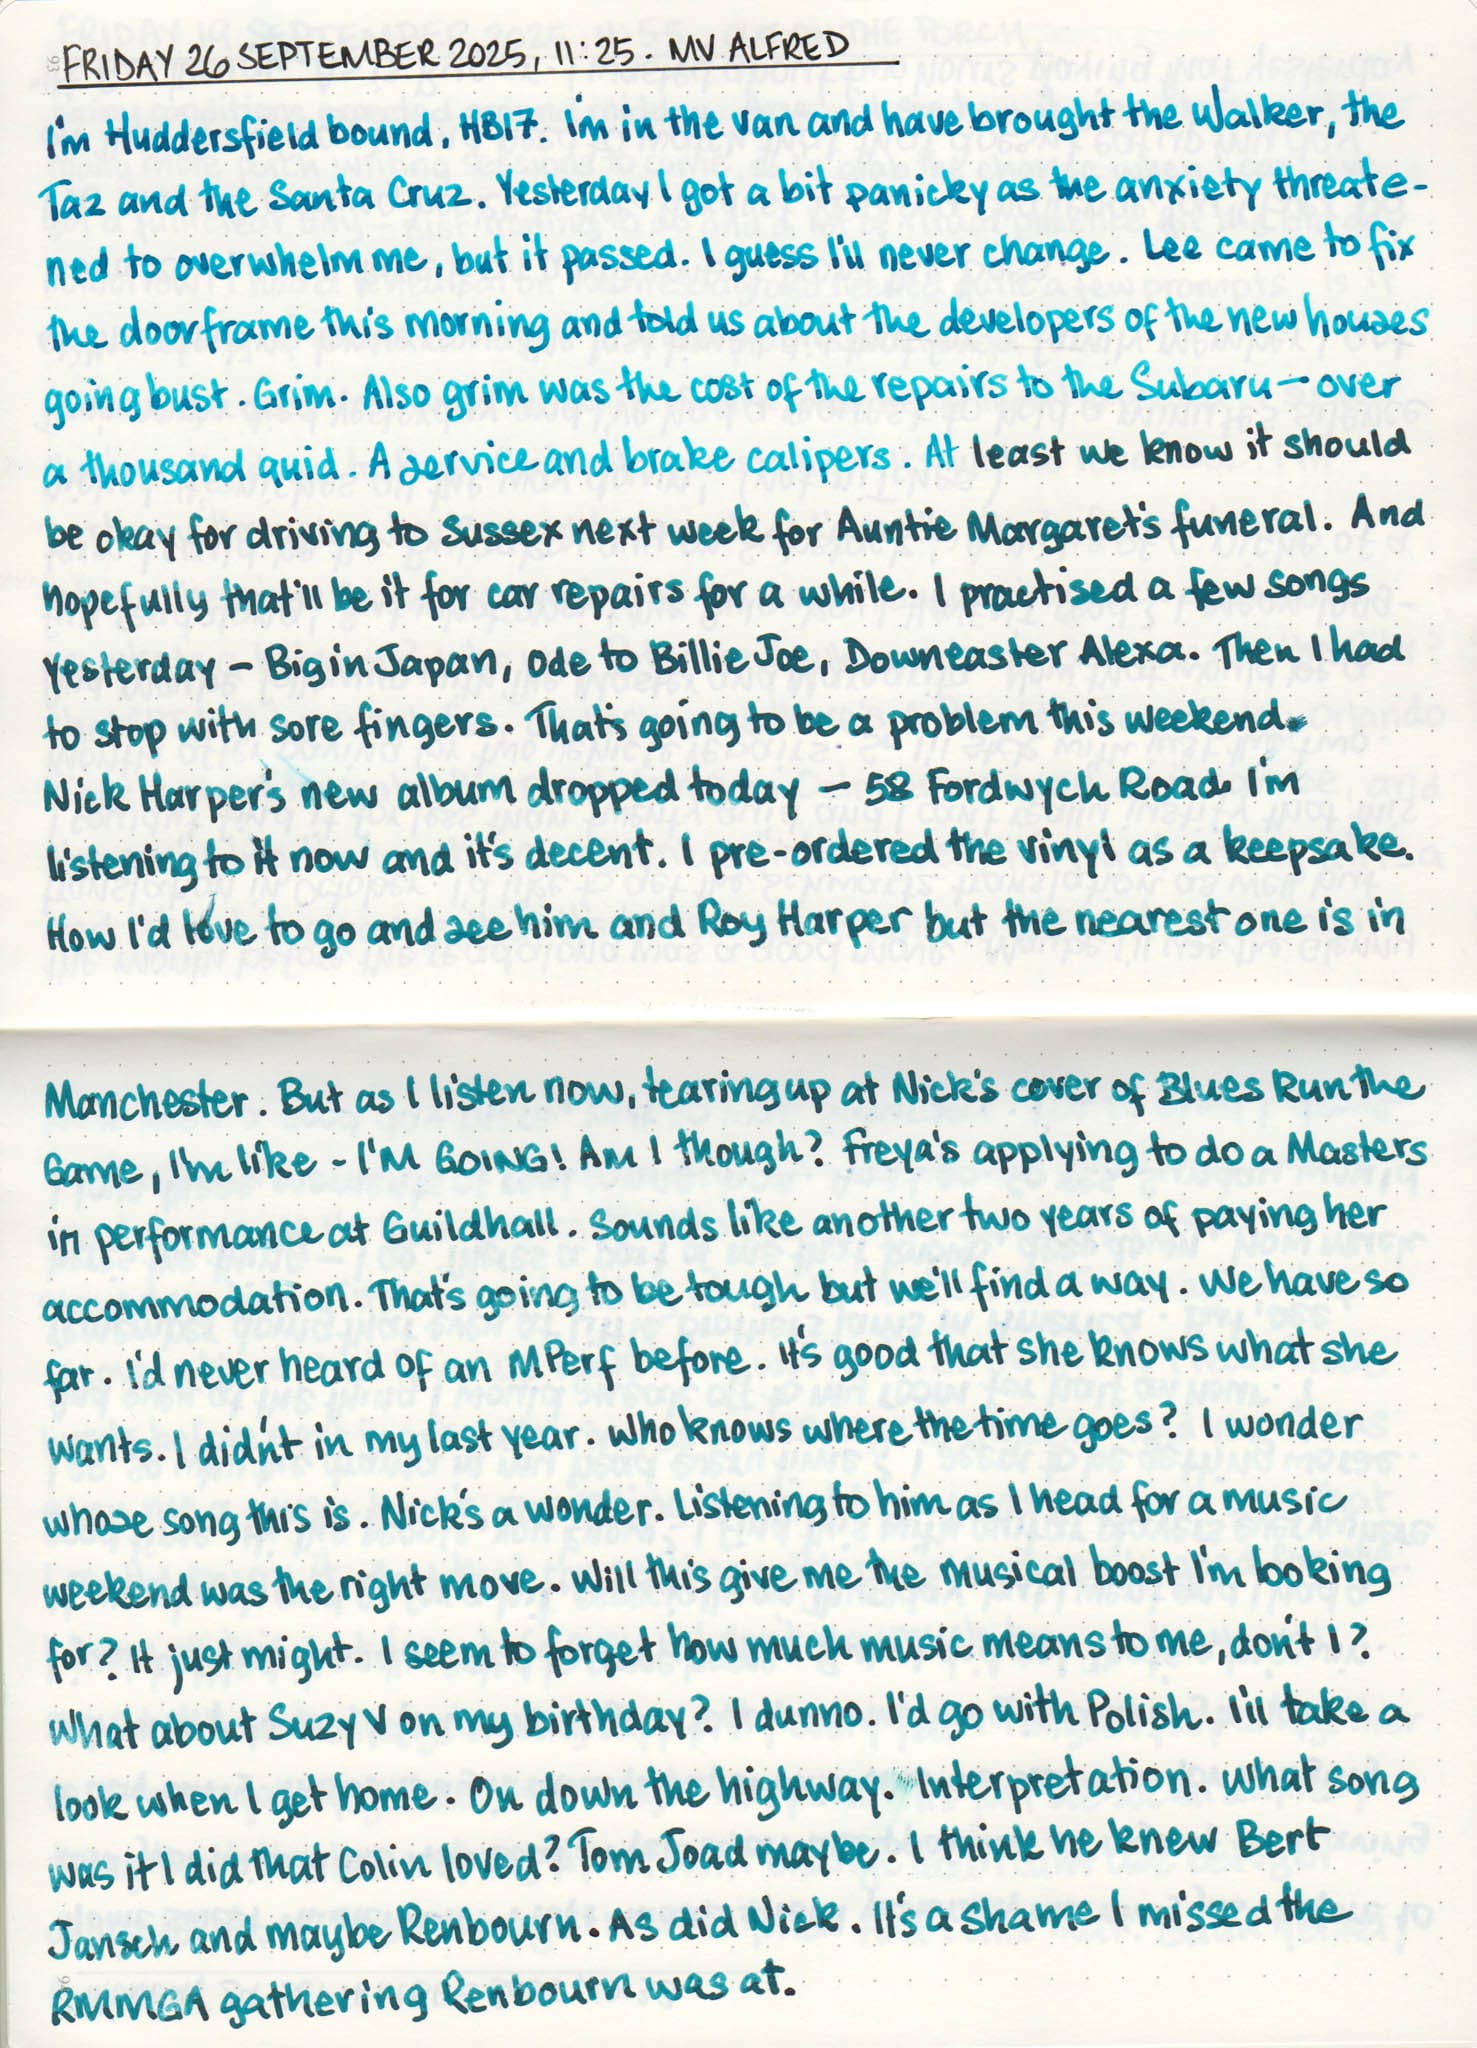 FRIDAY 26 SEPTEMBER 2025, 11:25. MV ALFRED
I'm Huddersfield bound, HB17. I'm in the van and have brought the Walker, the
Taz and the Santa Cruz. Yesterday I got a bit panicky as the anxiety threate-
ned to overwhelm me, but it passed. I guess I'll never change. Lee came to fix
the doorframe this morning and told us about the developers of the new houses
going bust. Grim. Also grim was the cost of the repairs to the Subaru – over
a thousand quid. A service and brake calipers. At least we know it should
be okay for driving to Sussex next week for Auntie Margaret's funeral. And
hopefully that'll be it for car repairs for a while. I practised a few songs
yesterday – Big in Japan, Ode to Billie Joe, Downeaster Alexa. Then I had
to stop with sore fingers. That's going to be a problem this weekend.
Nick Harper's new album dropped today – 58 Fordwych Road. I'm
listening to it now and it's decent. I pre-ordered the vinyl as a keepsake.
How I'd love to go and see him and Roy Harper but the nearest one is in
Manchester. But as I listen now, tearing up at Nick's cover of Blues Run the
Game, I'm like - I'M GOING! Am I though? Freya's applying to do a Masters
in performance at Guildhall. Sounds like another two years of paying her
accommodation. That's going to be tough but we'll find a way. We have so
far. I'd never heard of an MPerf before. It's good that she knows what she
wants. I didn't in my last year. Who knows where the time goes? I wonder
whose song this is. Nick's a wonder. Listening to him as I head for a music
weekend was the right move. Will this give me the musical boost I'm looking
for? It just might. I seem to forget how much music means to me, don't I?
What about Suzy V on my birthday? I dunno. I'd go with Polish. I'll take a
look when I get home. On down the highway. Interpretation. What song
was it I did that Colin loved? Tom Joad maybe. I think he knew Bert
Jansch and maybe Renbourn. As did Nick. It's a shame I missed the
RMMGA gathering Renbourn was at.